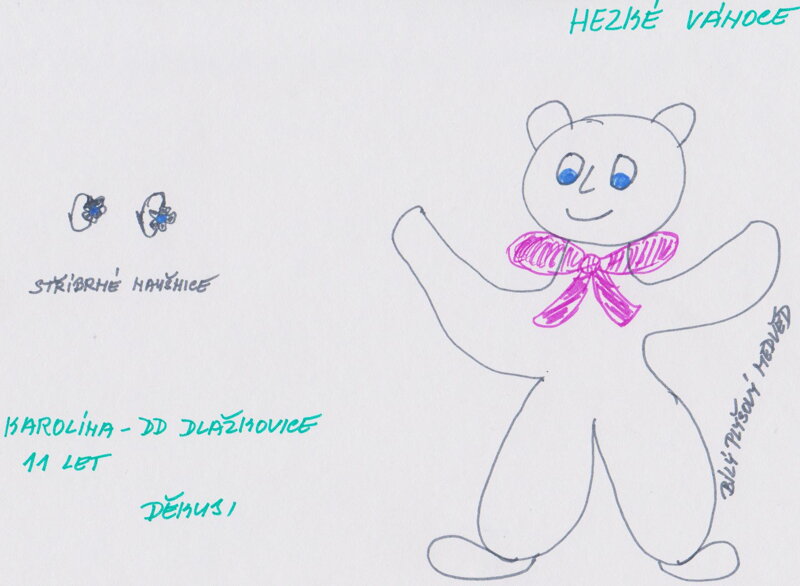 HEZKÉ VÁNOCE
STŘÍBRNÉ NAUŠNICE
BÍLÝ PLYŠOVÝ MEDVĚD
KAROLÍNA - DD DLAŽKOVICE
11 LET
DĚKUJI